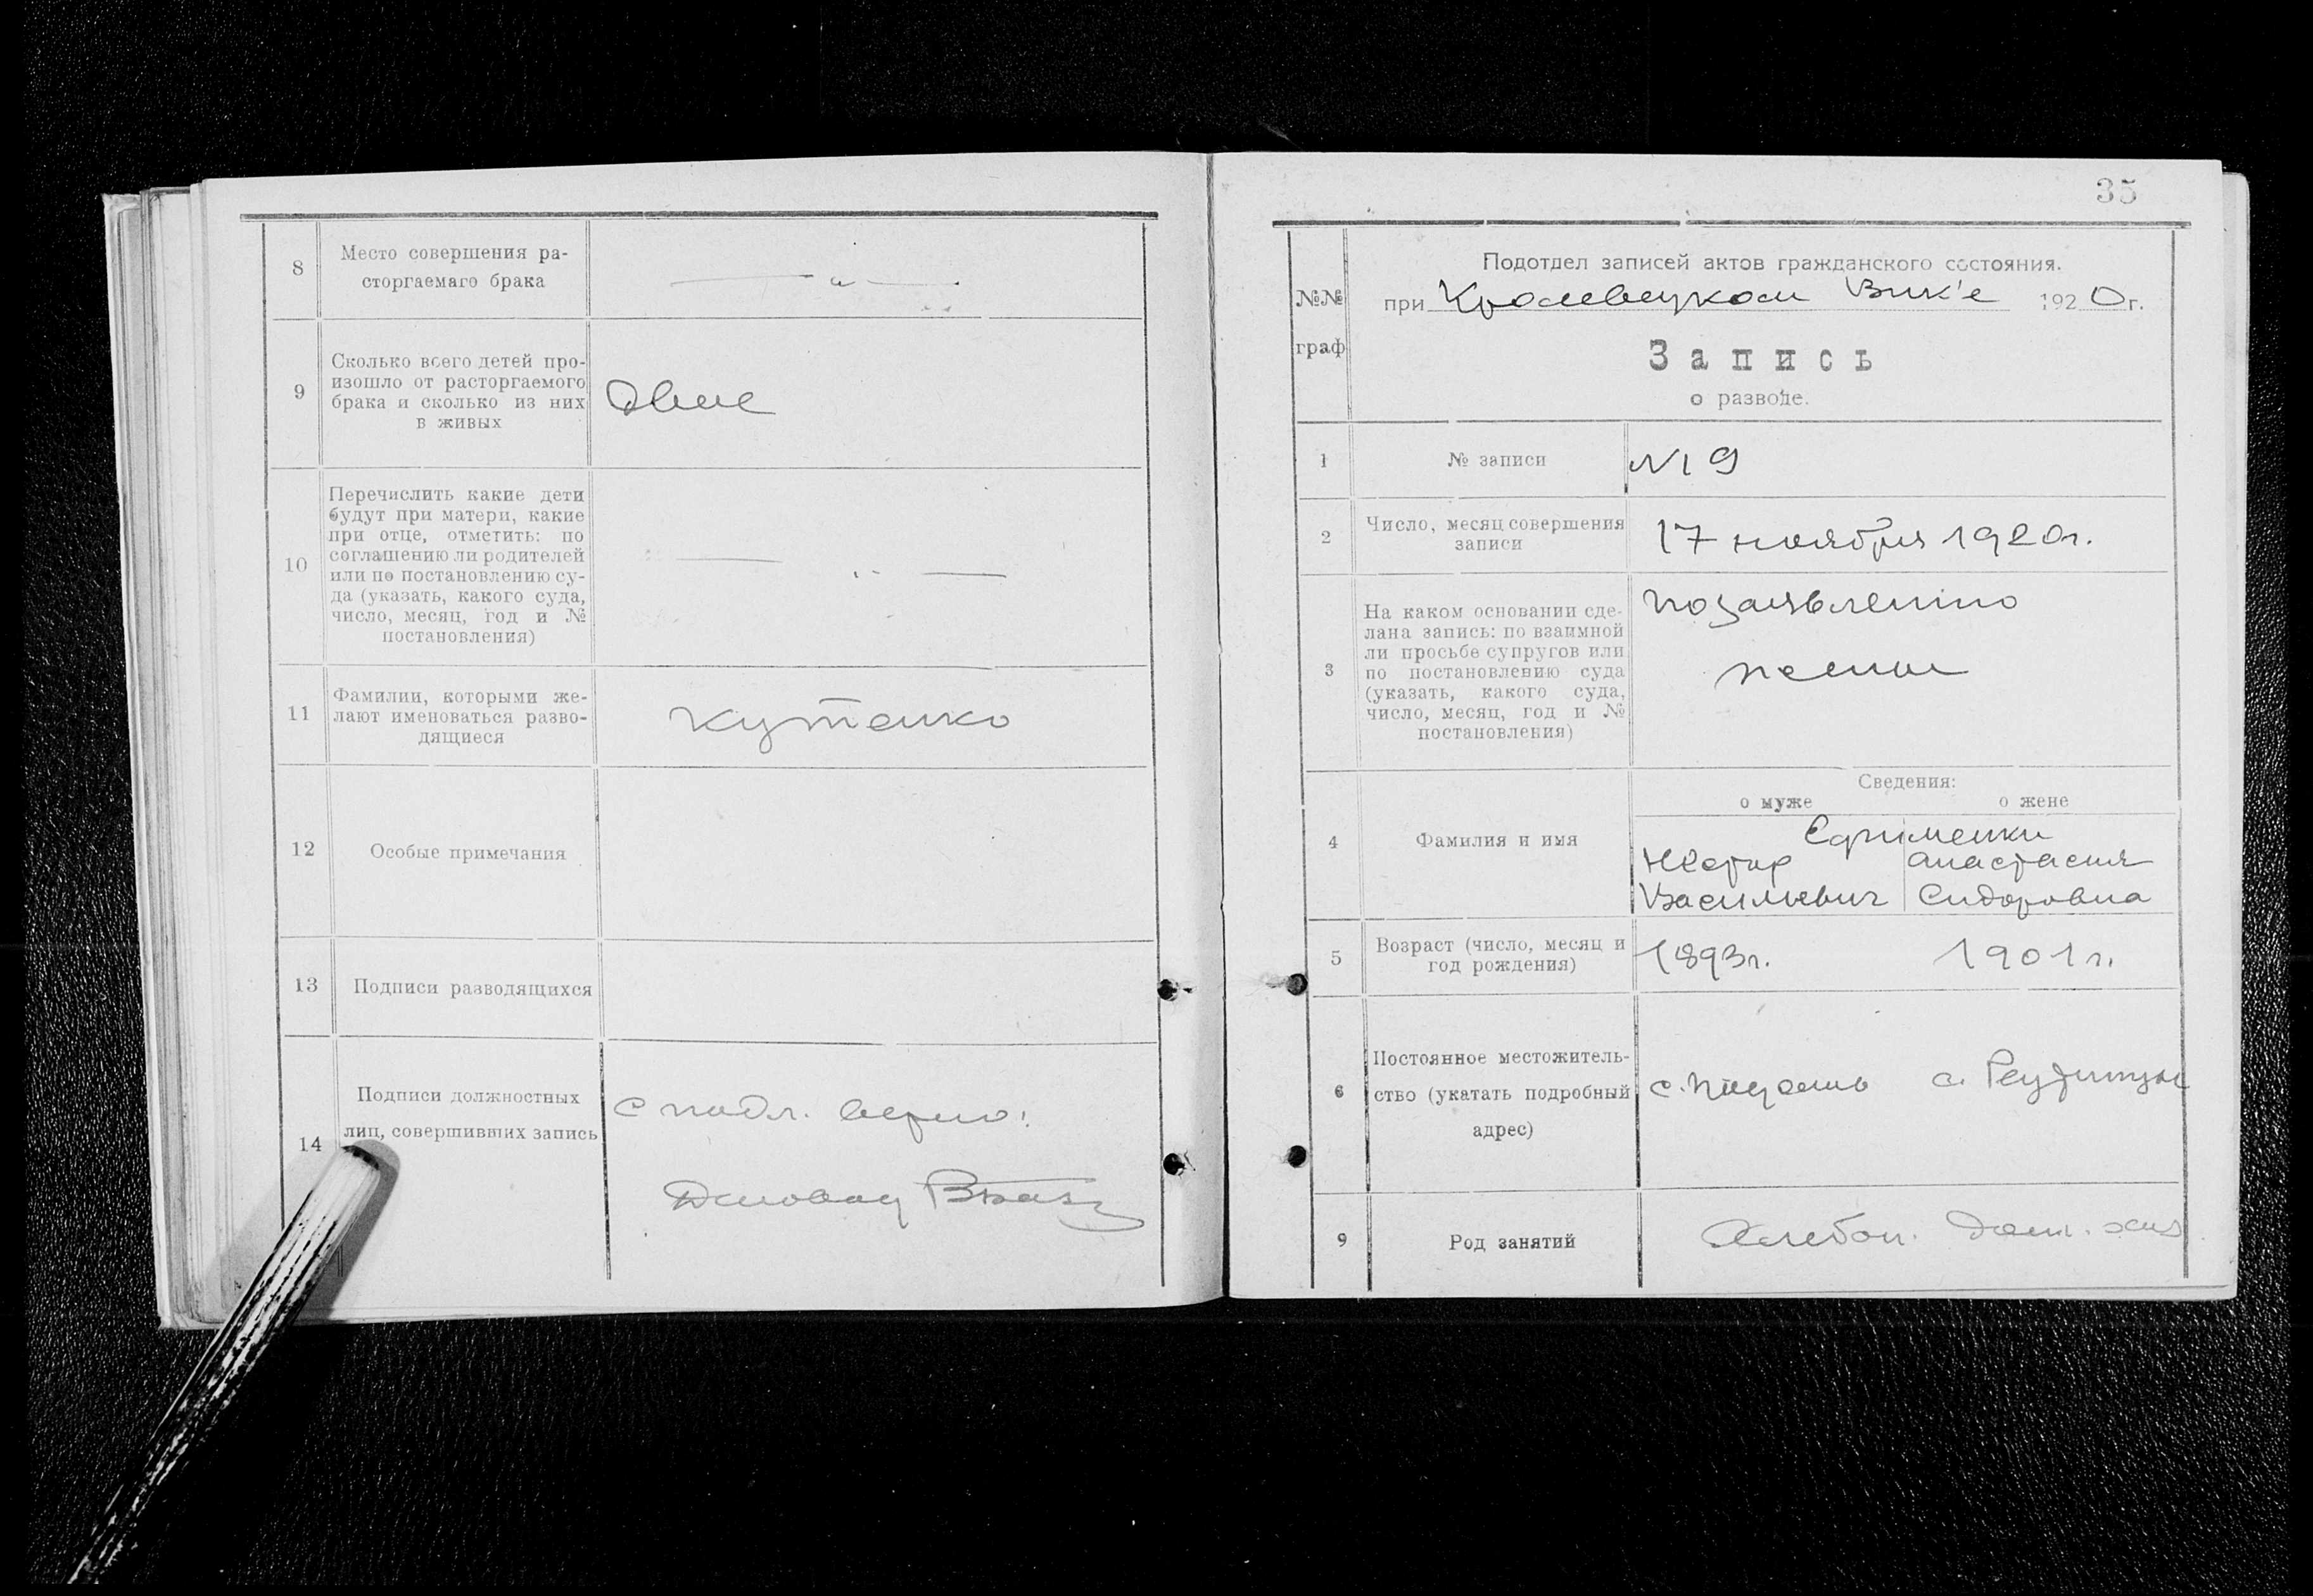 8
Место совершения ра-
сторгаемаго брака
9
Сколько всего детей про-
изошло от расторгаемого
брака и сколько из них
в живых
Двое
10
Перечислить какие дети
будут при матери, какие
при отце, отметить: по
соглашению ли родителей
или по постановлению су-
да (указать, какого суда,
число, месяц, год и №
постановления)
11
Фамилии, которыми же-
лают именоваться разво-
дящиеся
Кутенко
12
Особые примечания
13
Подписи разводящихся
14
Подписи должностных
лиц, совершивших запись
С подл. верно:
Деловод
35
№№
граф
Подотдел записей актов гражданского состояния.
при Кролевецком Вик'е 1920г.
Запись
о разводе.
1
№ записи
№ 9
2
Число, месяц совершения
записи
17 ноября 1920г.
3
На каком основании сде-
лана запись: по взаимной
ли просьбе супругов или
по постановлению суда
(указать, какого суда,
число, месяц, год и №
постановления)
по заявлению
жены
Сведения:
о муже о жене
4
Фамилия и имя
Ефименки
Нестор Анастасия
Васильевич Сидоровна
5
Возраст (число, месяц и
год рождения)
1893г. 1901г.
6
Постоянное местожитель-
ство (укатать подробный
адрес)
с. с. Реутинцы
9
Род занятий
Хлебоп. дом. хоз